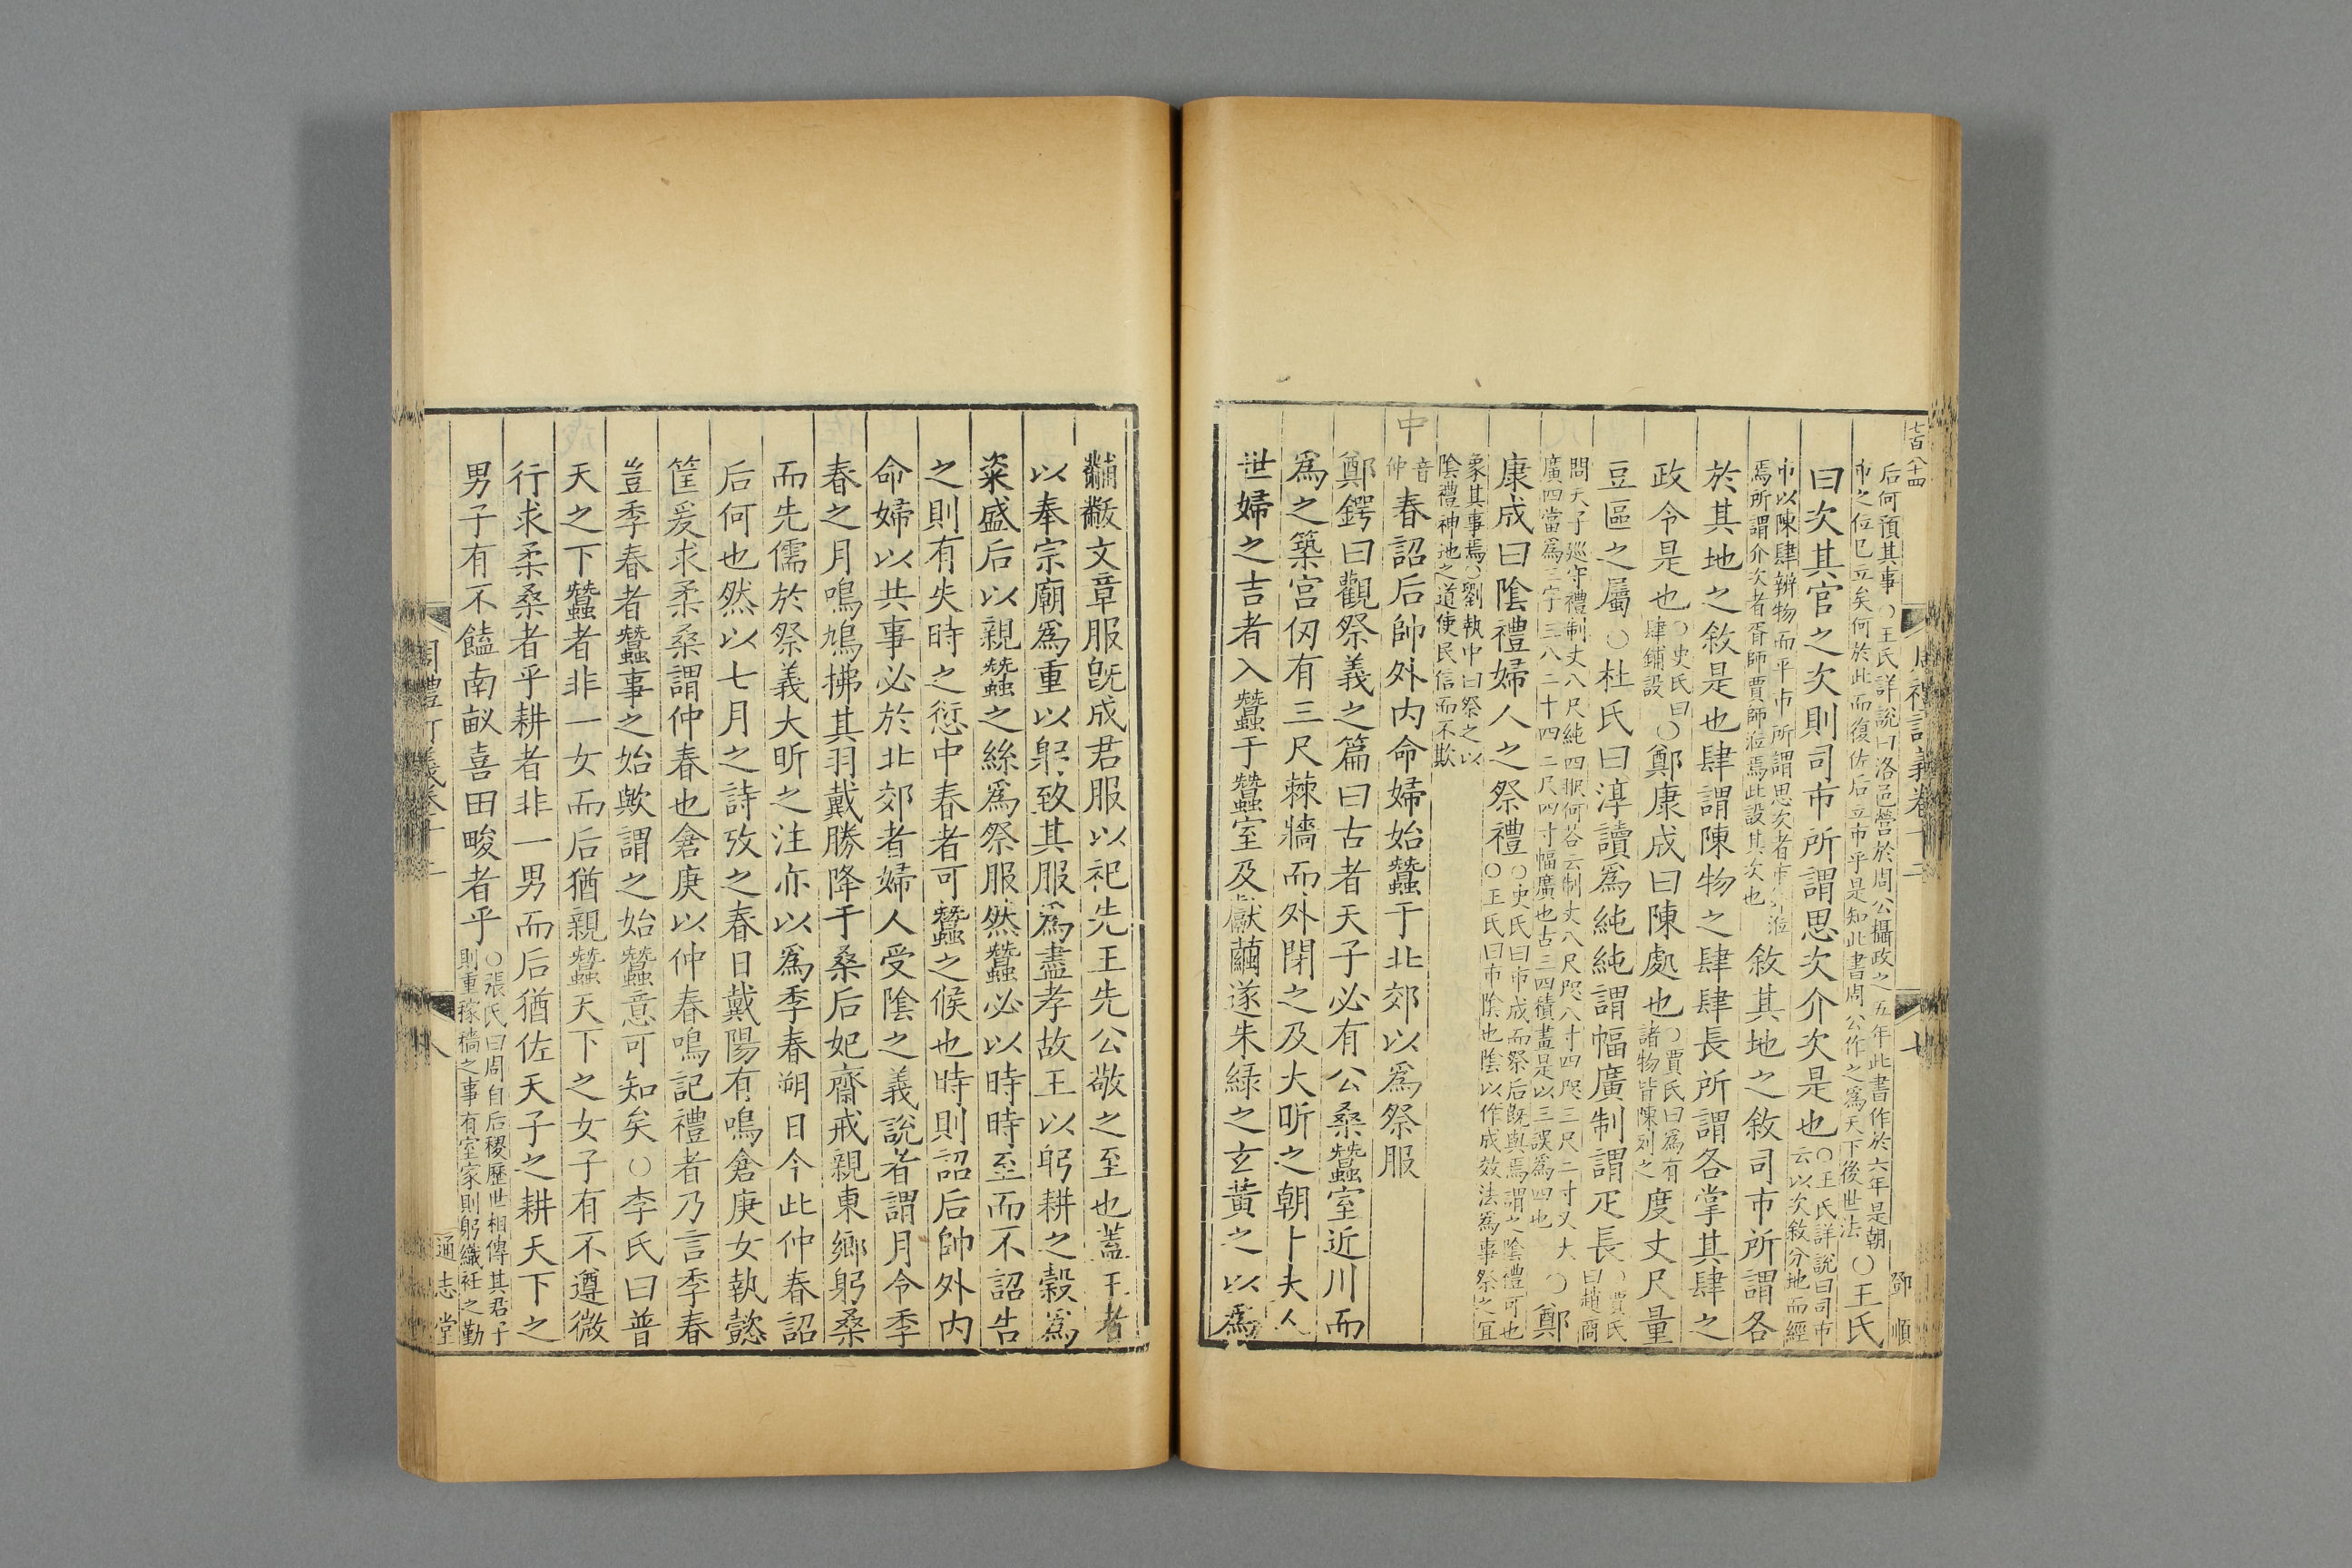 七百八十四
后何預其事○王氏詳說曰洛邑營於周公攝政之五年此書作於六年是朝
市之位已立矣何於此而復佐后立市乎是知此書周公作之為天下後世法○王氏
曰次其官之次則司市所謂思次介次是也○王氏詳說曰司市
云以次敘分地而經
市以陳肆辨物而平市所謂思次者市
焉所謂介次者胥師賈師涖焉此設其次也敘其地之敘司市所謂各
於其地之敘是也肆謂陳物之肆肆長所謂各掌其肆之
政令是也○史氏曰
肆鋪設○鄭康成曰陳處也○賈氏曰為有
諸物皆陳列之度丈尺量
豆區之屬○杜氏曰淳讀為純純謂幅廣制謂疋長○賈氏
曰趙商
問天子巡守禮制丈八尺純四𠃔何荅云制丈八尺咫八寸四咫三尺二寸又大
廣四當為三字三八二十四二尺四寸幅廣也古三四積畫是以三誤為四也○鄭
康成曰陰禮婦人之祭禮○史氏曰市成而祭后既與焉謂之陰禮可也
○王氏曰市陰也陰以作成效法為事祭之宜
象其事焉○劉執中曰祭之以
陰禮神池之道使民信而不欺
中音
仲春詔后帥外內命婦始蠶于北郊以為祭服
鄭鍔曰觀祭義之篇曰古者天子必有公桑蠶室近川而
為之築宮仞有三尺棘牆而外閉之及大昕之朝卜夫人
世婦之吉者入蠶于蠶室及獻繭遂朱綠之玄黃之以為
黼黻文章服既成君服以祀先王先公敬之至也蓋王者
以奉宗廟為重以躬致其服為盡孝故王以躬耕之穀為
粢盛后以親蠶之絲為祭服然蠶必以時時至而不詔告
之則有失時之愆中春者可蠶之候也時則詔后帥外內
命婦以共事必於北郊者婦人受陰之義說者謂月令季
春之月鳴鳩拂其羽戴勝降于桑后妃齋戒親東鄉躬桑
而先儒於祭義大昕之注亦以為季春朔日今此仲春詔
后何也然以七月之詩攷之春日戴陽有鳴倉庚女執懿
筐爰求柔桑謂仲春也倉庚以仲春鳴記禮者乃言季春
豈季春者蠶事之始歟謂之始蠶意可知矣○李氏曰普
天之下蠶者非一女而后猶親蠶天下之女子有不遵微
行求柔桑者乎耕者非一男而后猶佐天子之耕天下之
男子有不饁南畝喜田畯者乎○張氏曰周自后稷歷世相傳其君子
則重稼穡之事有室家則躬織紝之勤
通志堂